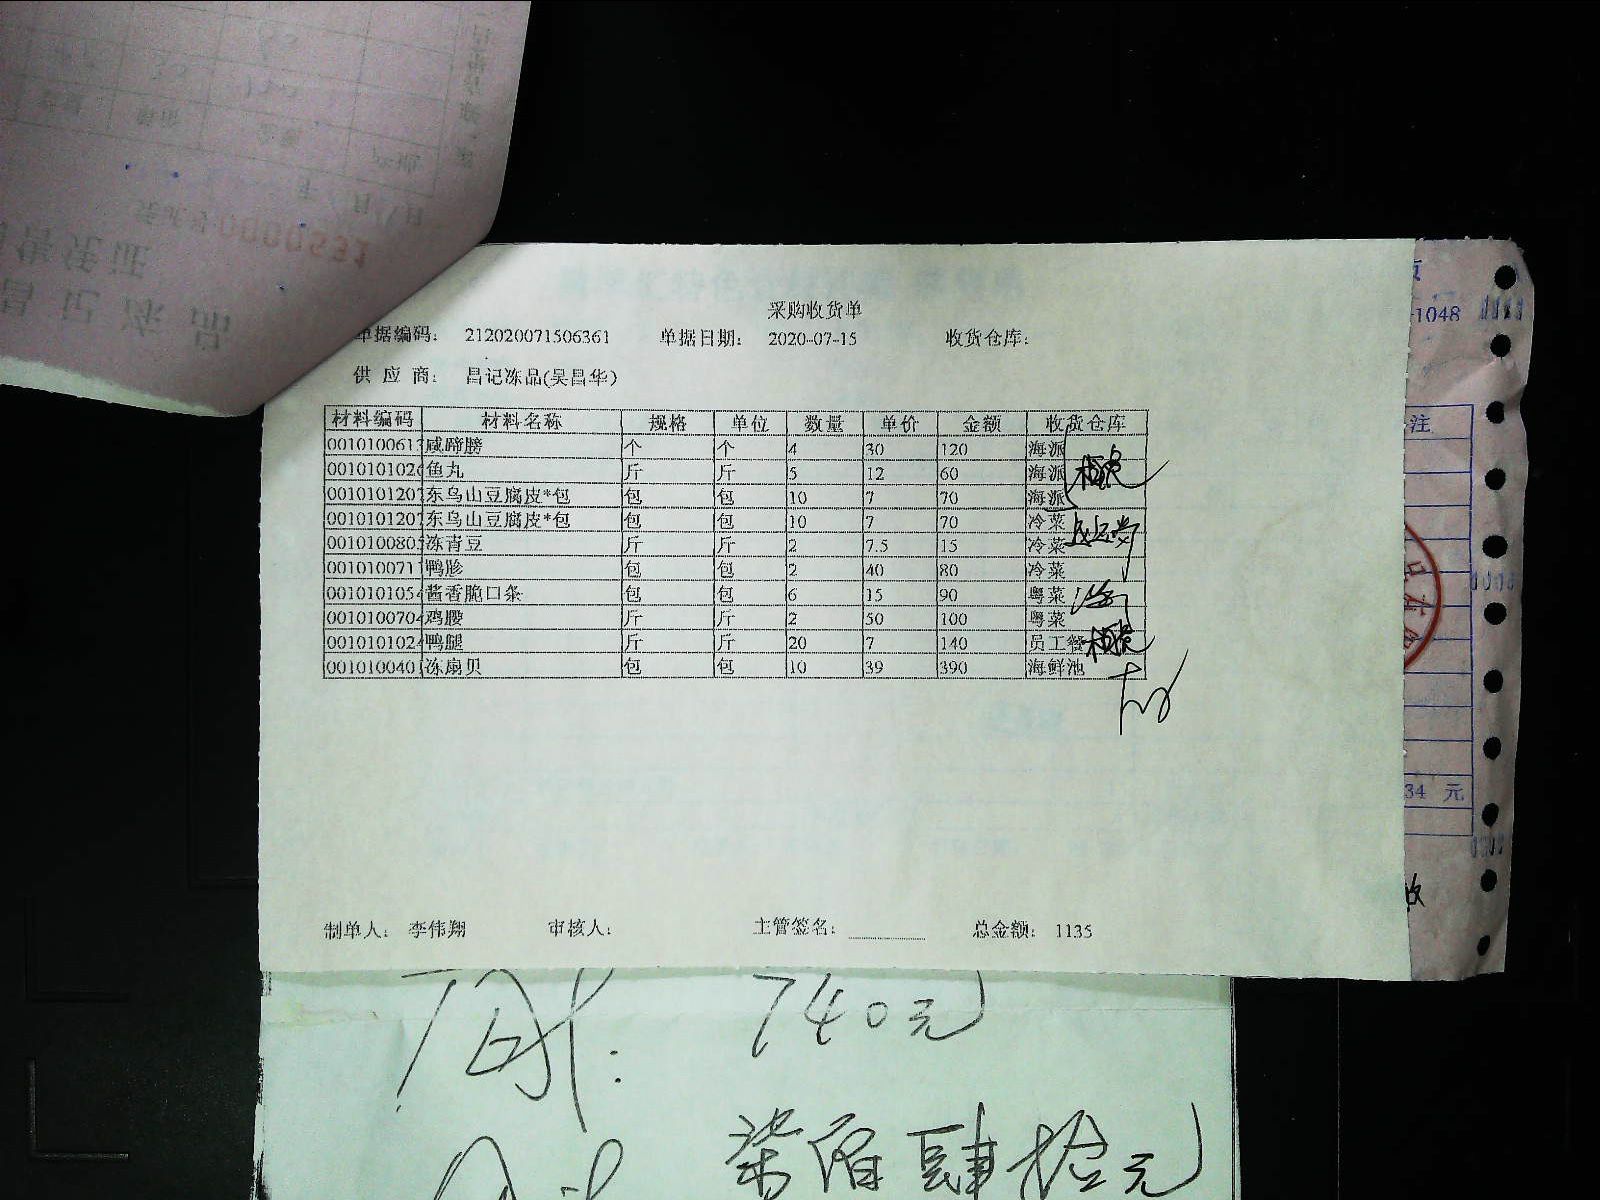 采购收货单
单据编码: 212020071506361 单据日期: 2020-07-15 收货仓库:
供应商: 昌记冻品(吴昌华)
材料编码 材料名称 规格 单位 数量 单价 金额 收货仓库
001010061 咸蹄膀 个 个 4 30 120 海派
001010102 鱼丸 斤 斤 5 12 60 海派
001010120 东乌山豆腐皮*包 包 包 10 7 70 海派
001010120 东乌山豆腐皮*包 包 包 10 7 70 冷菜
001010080 冻青豆 斤 斤 2 7.5 15 冷菜
001010071 鸭胗 包 包 2 40 80 冷菜
001010105 酱香脆口条 包 包 6 15 90 粤菜
001010070 鸡腰 斤 斤 2 50 100 粤菜
001010102 鸭腿 斤 斤 20 7 140 员工餐
001010040 冻扇贝 包 包 10 39 390 海鲜池
制单人: 李伟翔 审核人: 主管签名: 总金额: 1135
740元
柒佰肆拾元
1048
注
34 元
昌记冻品
0000531